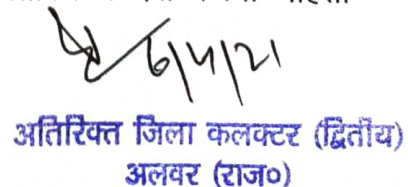 6/4/21
अतिरिक्त जिला कलक्टर (द्वितीय)
अलवर (राज०)